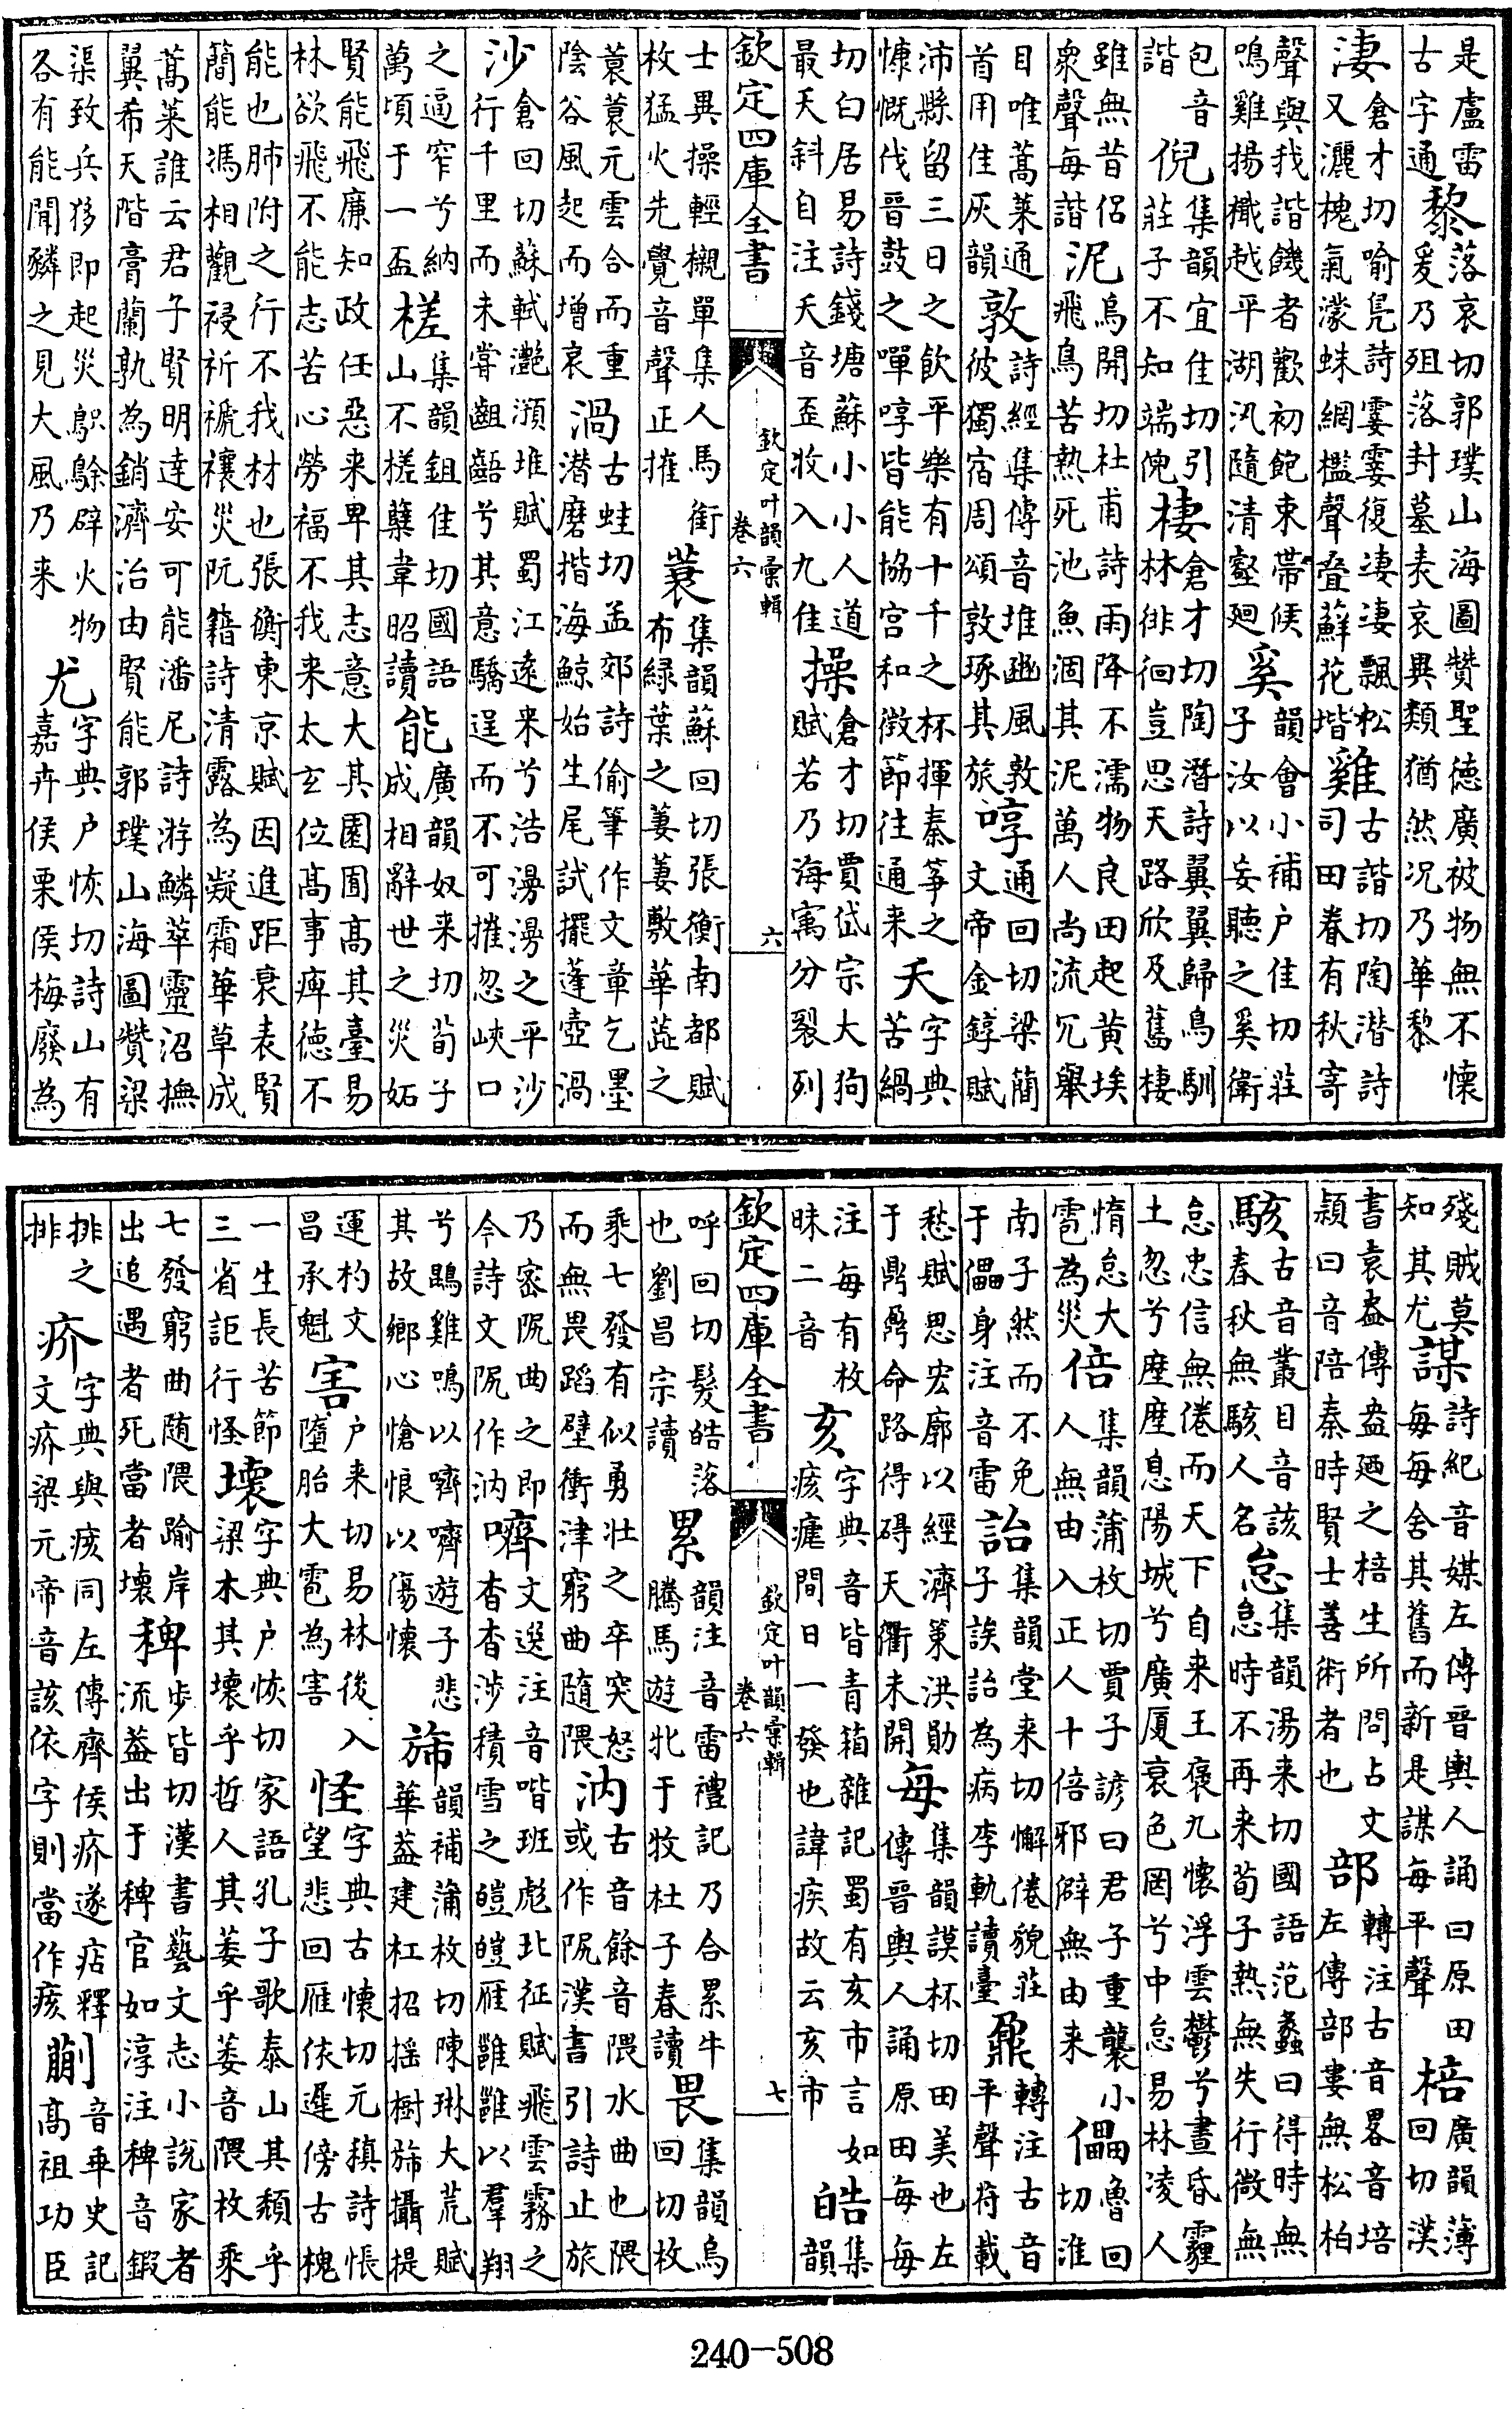 是盧雷古字通黎落哀切郭璞山海圖贊聖徳廣被物無不懷爰乃殂落封墓表哀異類猶然况乃華黎
淒倉才切喻鳧詩霎霎復淒淒飄松又灑槐氣濛蛛網檻聲叠蘚花堦雞古諧切陶潜詩司田眷有秋寄
聲與我諧饑者歡初飽束帶候鳴雞揚檝越平湖汎隨清壑廻奚韻會小補户佳切莊子汝以妄聽之奚衛
包音諧倪集韻宜佳切引莊子不知端倪棲倉才切陶潛詩翼翼歸鳥馴林徘徊豈思天路欣及舊棲
雖無昔侶衆聲每諧泥鳥開切杜甫詩雨降不濡物良田起黄埃飛鳥苦熱死池魚涸其泥萬人尚流冗舉
目唯蒿萊通首用佳灰韻敦詩經集傳音堆豳風敦彼獨宿周頌敦琢其旅啍通回切梁簡文帝金錞賦
沛縣留三日之飲平樂有十千之杯揮秦筝之慷慨伐晉鼓之嘽啍皆能協宫和徴節往通来夭字典苦緺
切白居易詩錢塘蘇小小人道最夭斜自注夭音歪收入九佳操倉才切賈岱宗大狗賦若乃海寓分裂列
欽定四庫全書 欽定叶韻彙輯 卷六 六
士異操輕櫬單集人馬銜枚猛火先覺音聲正摧蓑集韻蘇回切張衡南都賦布緑葉之萋萋敷華蕋之
蓑蓑元雲合而重陰谷風起而增哀渦古蛙切孟郊詩偷筆作文章乞墨潜磨揩海鯨始生尾試擺蓬壺渦
沙倉回切蘇軾灧澦堆賦蜀江遠来兮浩漫漫之平沙行千里而未嘗齟齬兮其意驕逞而不可摧忽峽口
之逼窄兮納萬頃于一盃槎集韻鉏佳切國語山不槎蘖韋昭讀能廣韻奴来切荀子成相辭世之災妬
賢能飛廉知政任惡来卑其志意大其園囿高其臺易林欲飛不能志苦心勞福不我来太玄位高事痺徳不
能也肺附之行不我材也張衡東京賦因進距衰表賢簡能馮相觀祲祈褫禳災阮籍詩清露為凝霜華草成
蒿萊誰云君子賢明達安可能潘尼詩游鱗萃靈沼撫翼希天階膏蘭孰為銷濟治由賢能郭璞山海圖贊梁
渠致兵移即起災鵌辟火物各有能聞獜之見大風乃来尤字典户恢切詩山有嘉卉侯栗侯梅廢為
殘賊莫知其尤謀詩紀音媒左傳晉輿人誦曰原田每每舍其舊而新是謀每平聲棓廣韻薄回切漢
書袁盎傳盎廼之棓生所問占文頴曰音陪秦時賢士善術者也部轉注古音畧音培左傳部婁無松柏
駭古音叢目音該春秋無駭人名怠集韻湯来切國語范蠡曰得時無怠時不再来荀子熱無失行微無
怠忠信無倦而天下自来王褒九懷浮雲鬱兮晝昏霾土忽兮塺塺息陽城兮廣厦衰色罔兮中怠易林凌人
惰怠大雹為災倍集韻蒲枚切賈子諺曰君子重襲小人無由入正人十倍邪辟無由来儡魯回切淮
南子然而不免于儡身注音雷詒集韻堂来切懈倦貌莊子誒詒為病李軌讀臺鼐轉注古音平聲符載
愁賦思宏廓以經濟策洪勛于鼎鼐命路得碍天衢未開每集韻謨杯切田美也左傳晉輿人誦原田每每
注每有枚昧二音亥字典音皆青箱雜記蜀有亥市言如痎瘧間日一發也諱疾故云亥市皓集韻
欽定四庫全書 欽定叶韻彙輯 卷六 七
呼回切髮皓落也劉昌宗讀累韻注音雷禮記乃合累牛騰馬遊牝于牧杜子春讀畏集韻烏回切枚
乘七發有似勇壯之卒突怒而無畏蹈壁衝津窮曲隨隈汭古音餘音隈水曲也隈或作阮漢書引詩止旅
乃宻阮曲之即今詩文阮作汭嚌文選注音喈班彪北征賦飛雲霧之杳杳涉積雪之皚皚雁雝雝以羣翔
兮鵾雞鳴以嚌嚌遊子悲其故鄉心愴悢以傷懷斾韻補蒲枚切陳琳大荒賦華葢建杠招摇樹斾攝提
運杓文昌承魁害户来切易林後入墮胎大雹為害怪字典古懷切元稹詩悵望悲回雁依遲傍古槐
一生長苦節三省詎行怪壞字典户恢切家語孔子歌泰山其頽乎梁木其壞乎哲人其萎乎萎音隈枚乘
七發窮曲随隈踰岸出追遇者死當者壊稗步皆切漢書藝文志小說家者流葢出于稗官如淳注稗音鍜
排之排疥字典與痎同左傳齊侯疥遂痁釋文疥梁元帝音該依字則當作痎蒯音乖史記高祖功臣